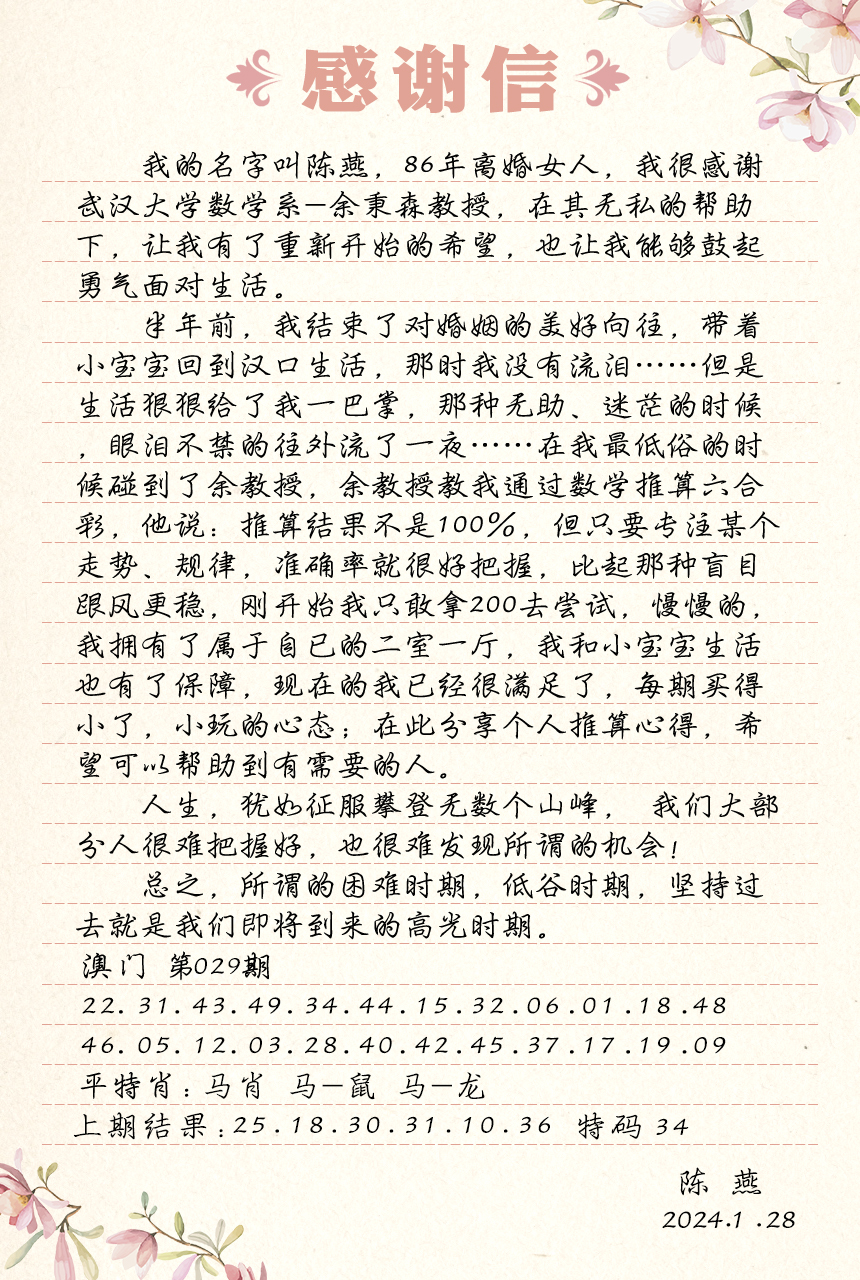 感谢信
我的名字叫陈燕，86年离婚女人，我很感谢
武汉大学数学系—余秉森教授，在其无私的帮助
下，让我有了重新开始的希望，也让我能够鼓起
勇气面对生活。
半年前，我结束了对婚姻的美好向往，带着
小宝宝回到汉口生活，那时我没有流泪……但是
生活狠狠给了我一巴掌，那种无助、迷茫的时候
，眼泪不禁的往外流了一夜……在我最低俗的时
候碰到了余教授，余教授教我通过数学推算六合
彩，他说：推算结果不是100%，但只要专注某个
走势、规律，准确率就很好把握，比起那种盲目
跟风更稳，刚开始我只敢拿200去尝试，慢慢的，
我拥有了属于自已的二室一厅，我和小宝宝生活
也有了保障，现在的我已经很满足了，每期买得
小了，小玩的心态；在此分享个人推算心得，希
望可以帮助到有需要的人。
人生，犹如征服攀登无数个山峰， 我们大部
分人很难把握好，也很难发现所谓的机会！
总之，所谓的困难时期，低谷时期，坚持过
去就是我们即将到来的高光时期。
澳门 第029期
22.31.43.49.34.44.15.32.06.01.18.48
46.05.12.03.28.40.42.45.37.17.19.09
平特肖：马肖 马—鼠 马—龙
上期结果：25.18.30.31.10.36 特码 34
陈 燕
2024.1.28